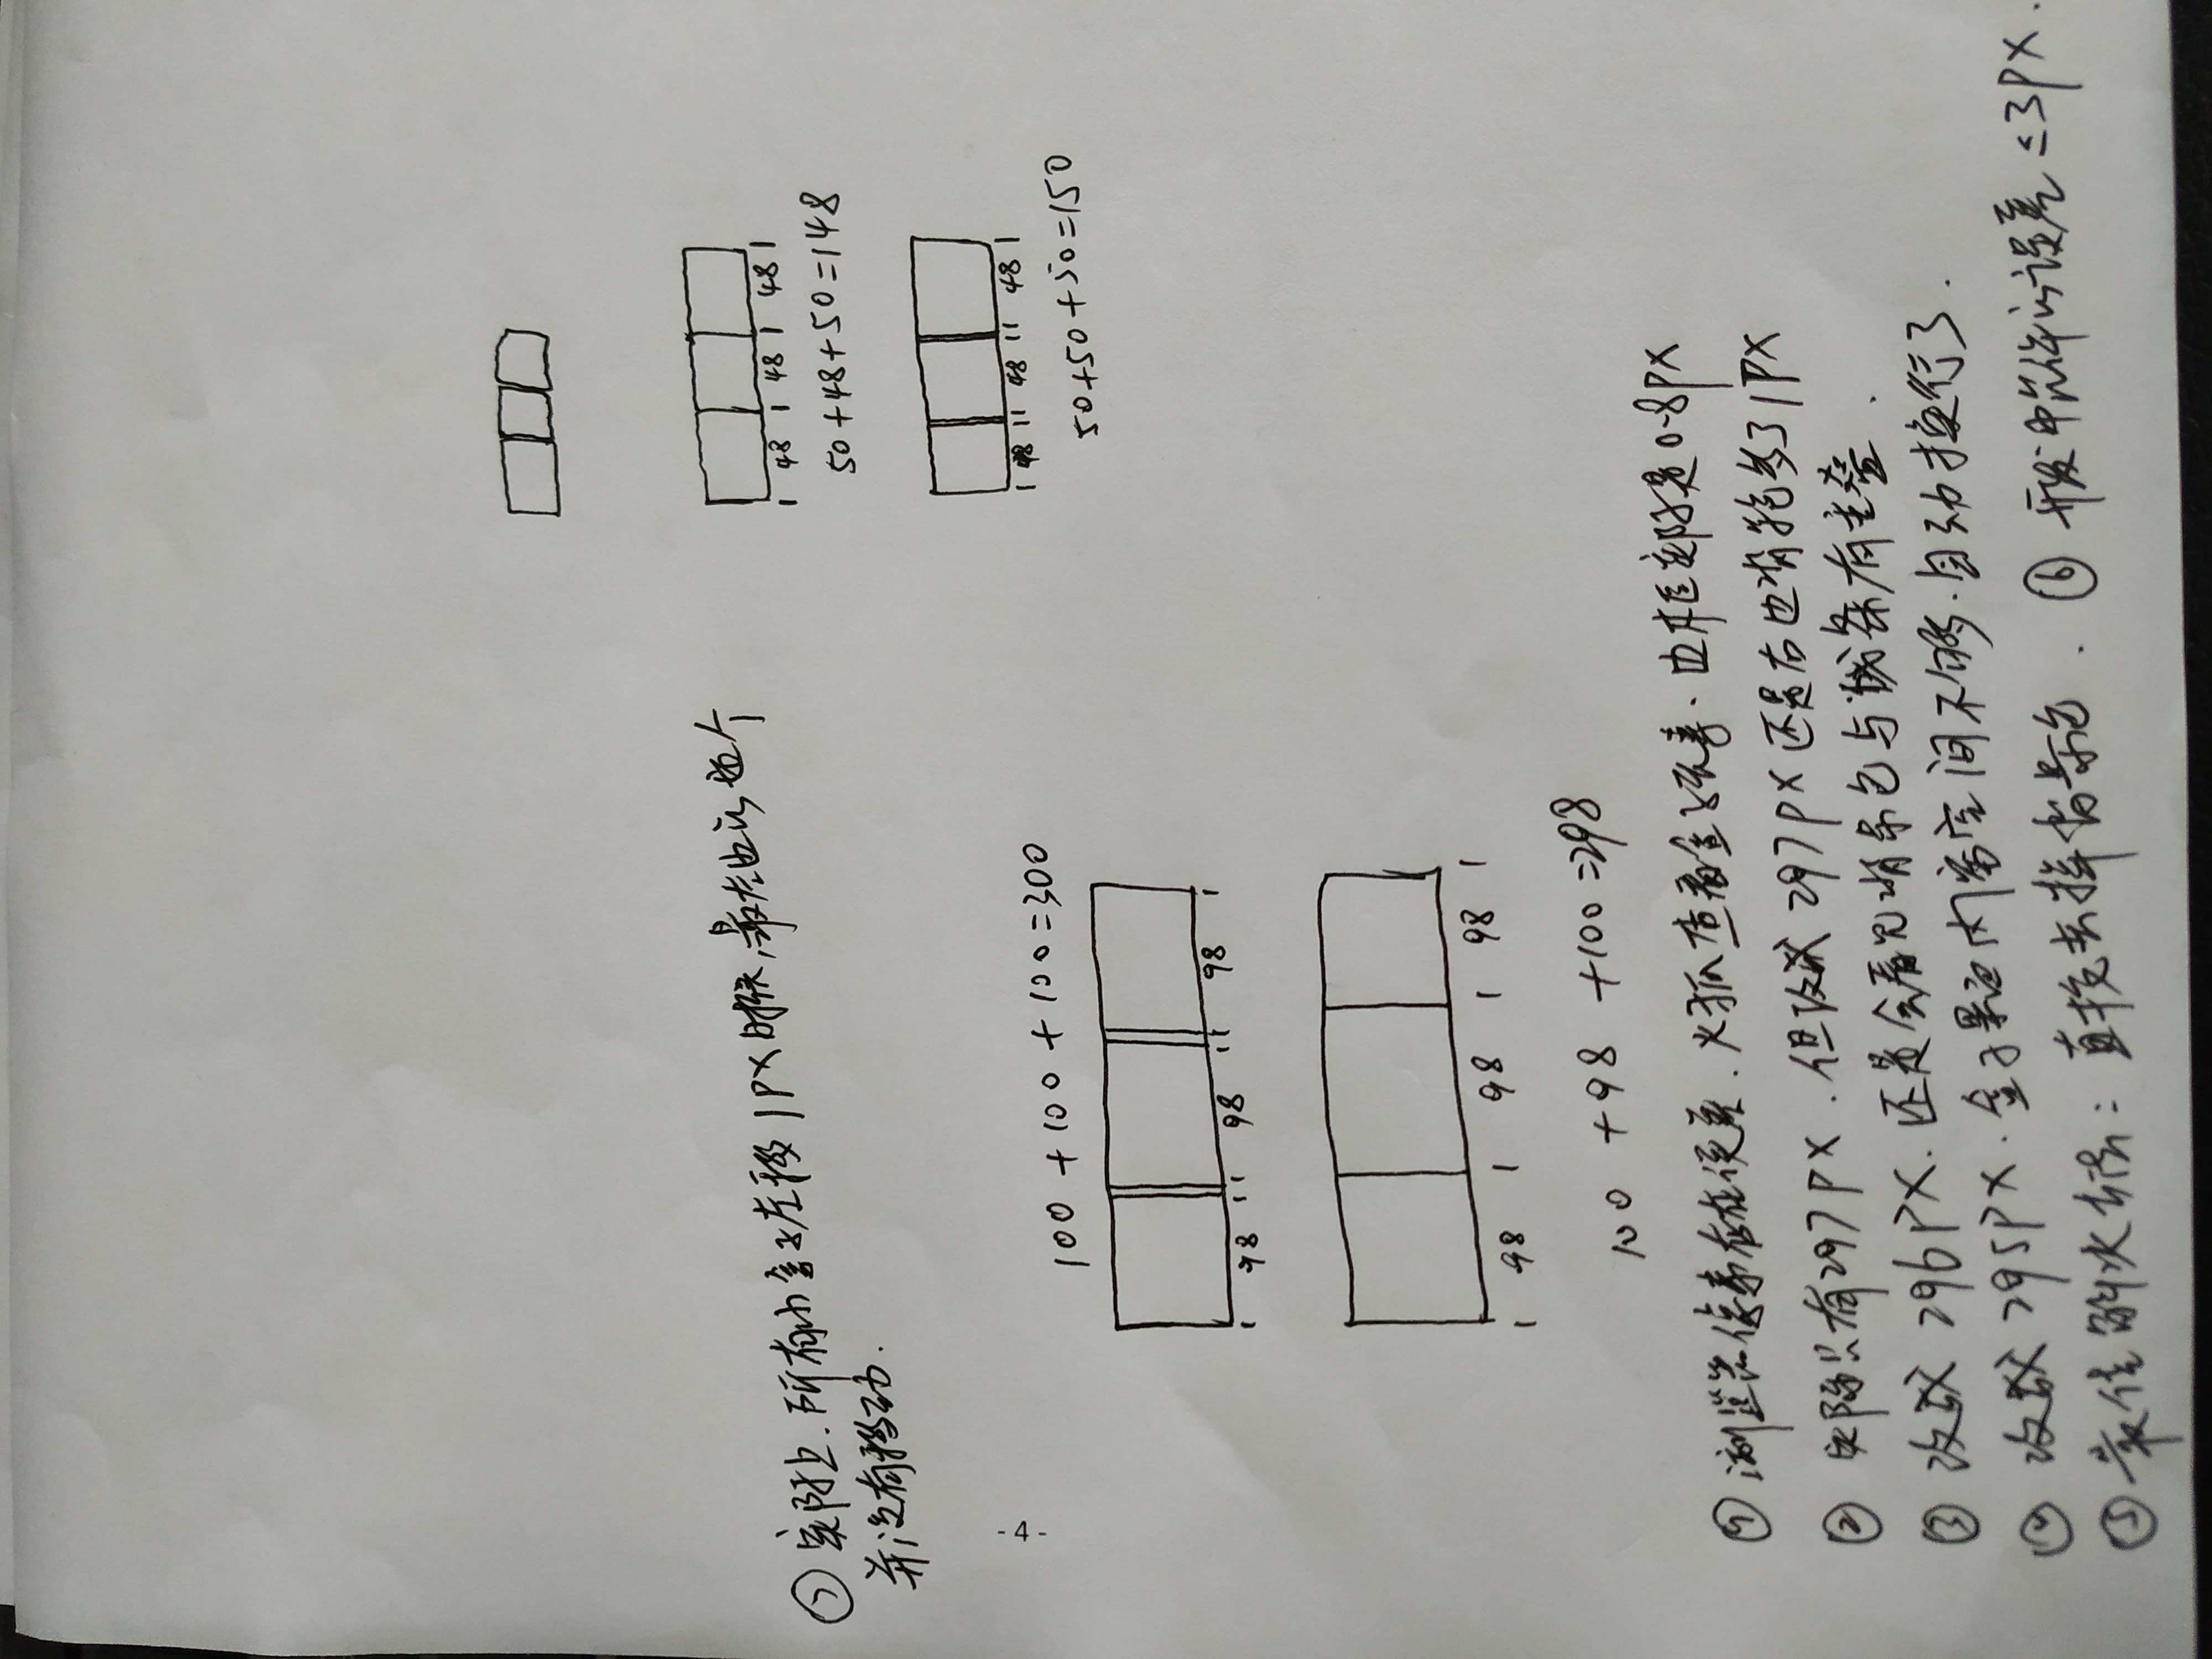 1 48 1 48 1 48 1
50+48+50=148
⑦ 实际上.所有小盒子左移1PX时候,最左边的这个
并没有移动.
1 48 11 48 11 48 1
50+50+50=150
-4-
100+100+100=300
1 98 11 98 11 98 1
1 98 1 98 1 98 1
100+98+100=298
① 浏览器像素存在误差.火狐查看盒子元素.边框实际是0.8PX
② 实际只有297PX.但改成297PX还是右边背景多了1PX
③ 改成296PX.还是会看见背景色与线条有重叠.
④ 改成295PX.盒子里面内容空间不够.自动换行了.
⑤ 最佳解决方法:直接去掉背景色. ⑥ 开发中允许的误差≤3PX.